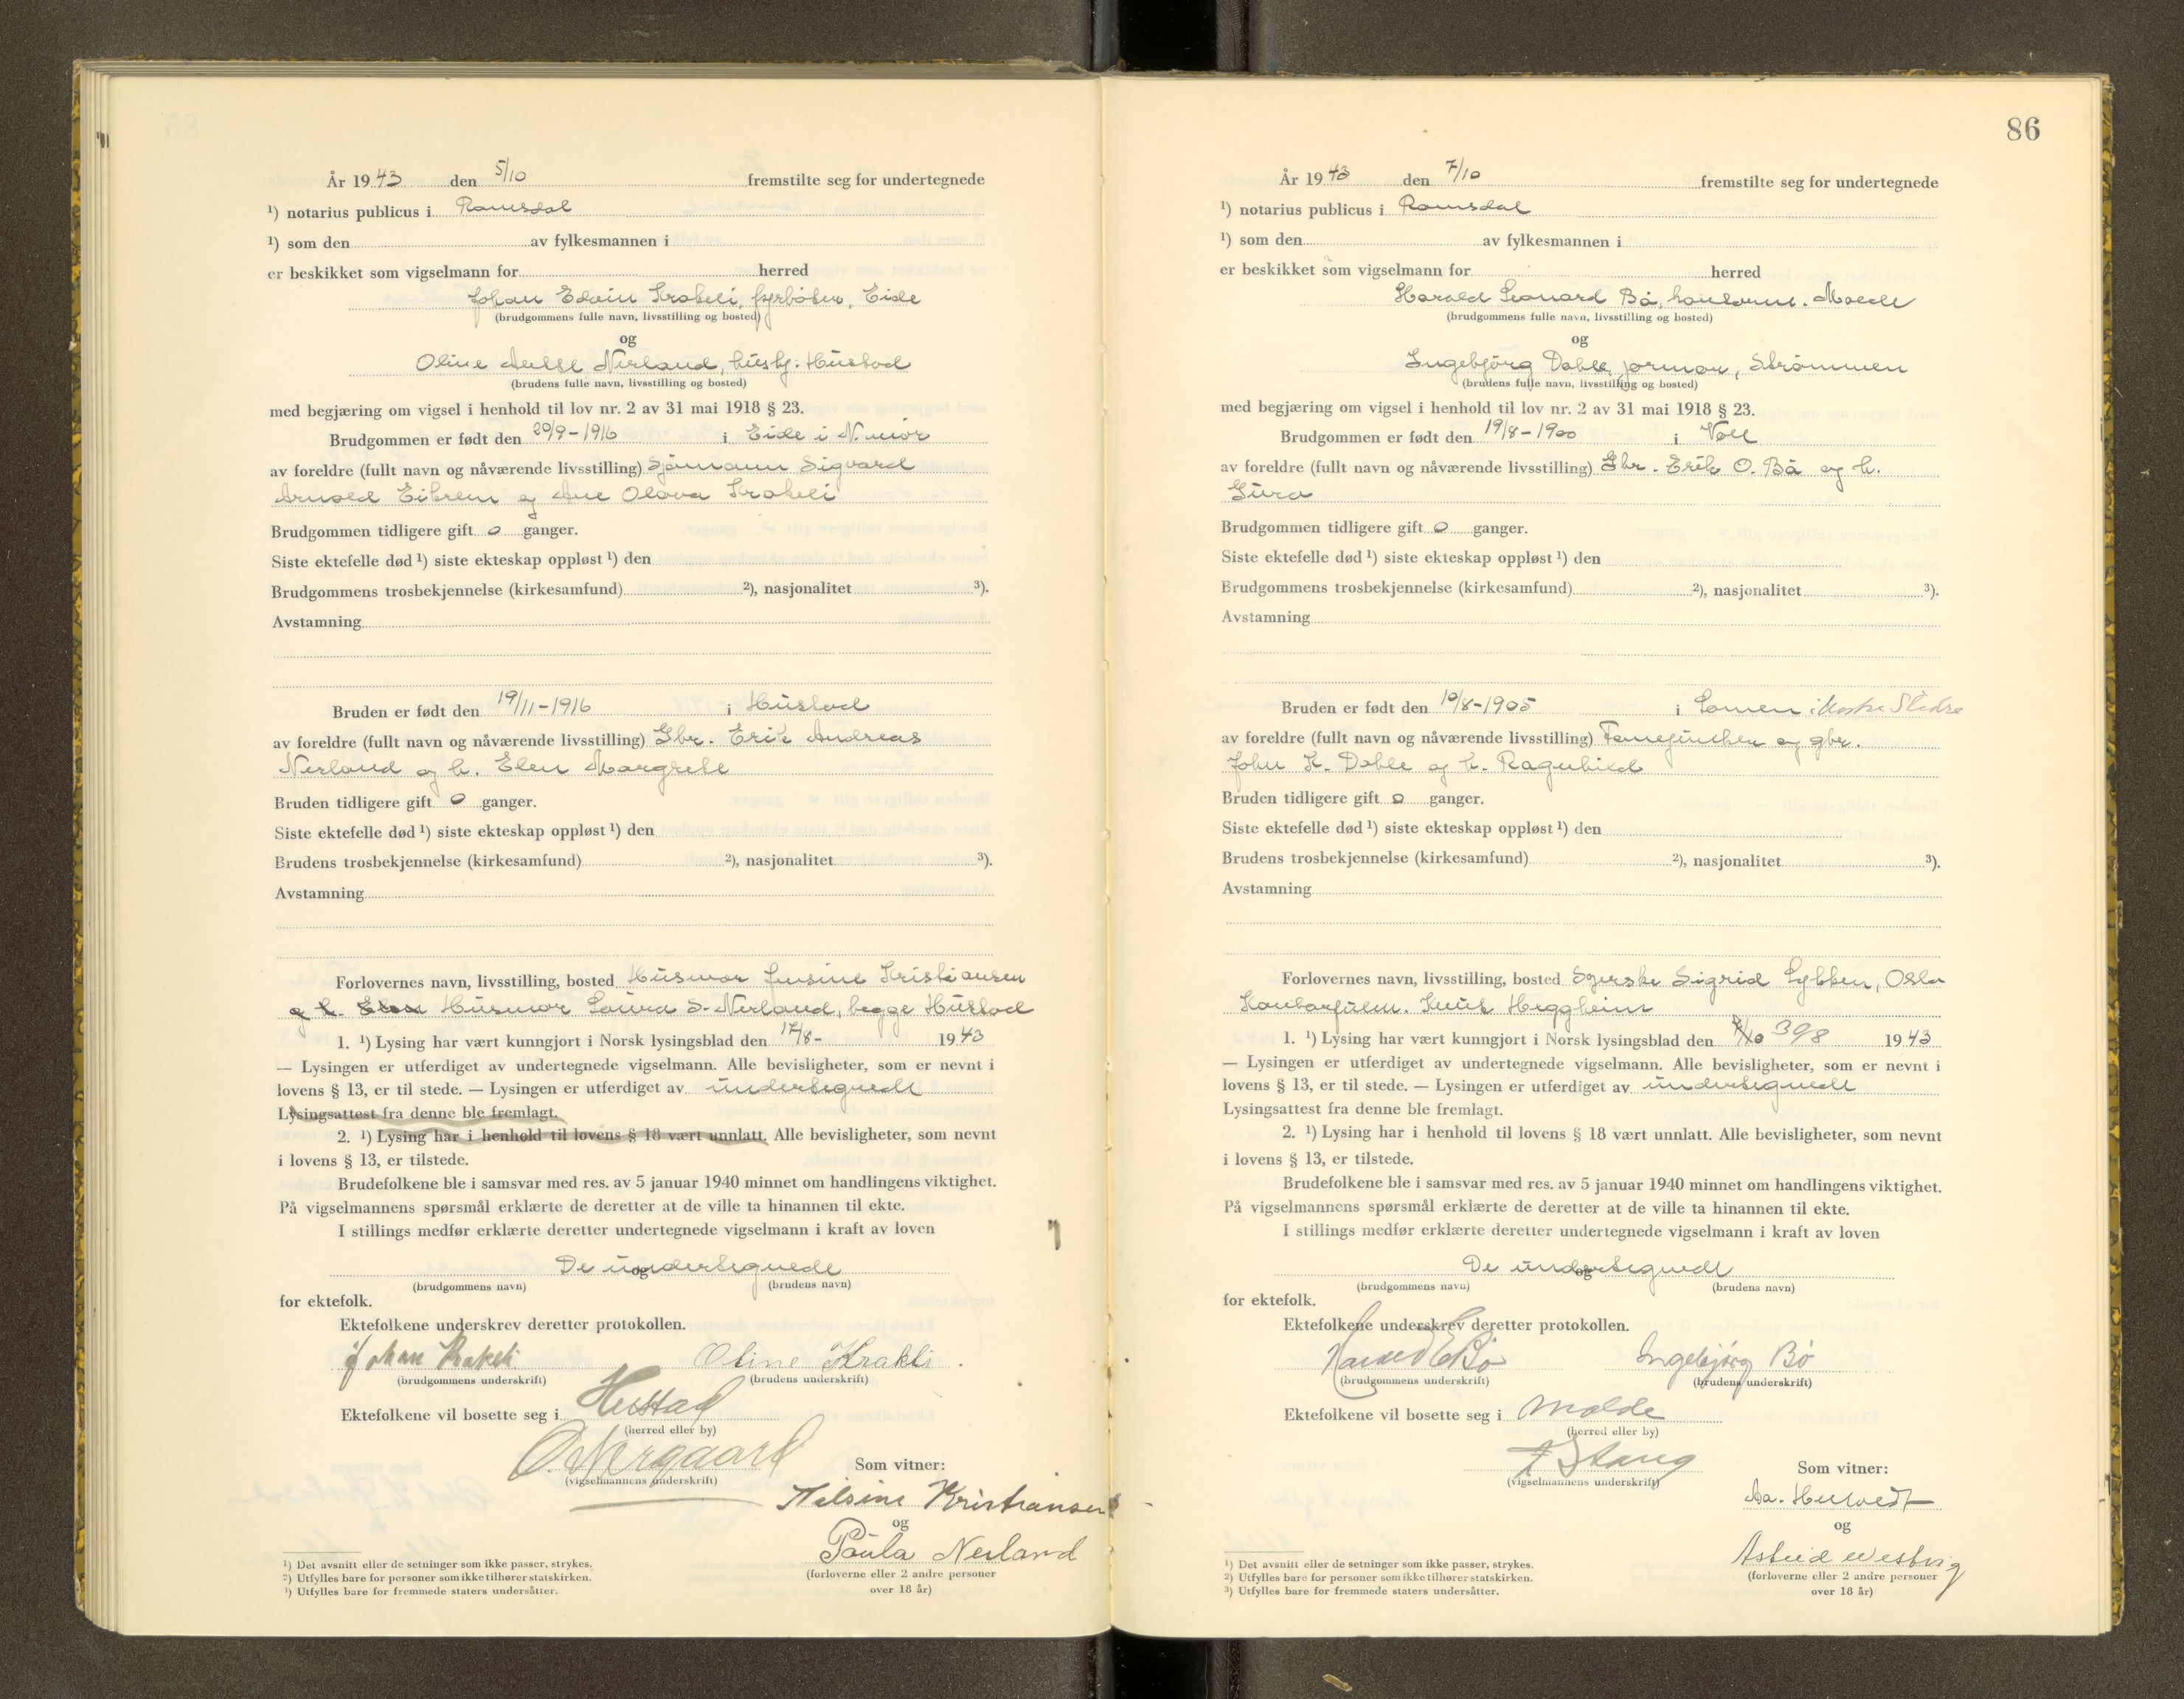 År 1943 den 5/10 fremstilte seg for undertegnede
¹) notarius publicus i Romsdal
¹) som den av fylkesmannen i
er beskikket som vigselmann for herred
Johan Edvin Krakeli, fyrbøter, Eide
(brudgommens fulle navn, livsstilling og bosted)
og
Oline Nerland, hushj. Hustad
(brudens fulle navn, livsstilling og bosted)
med begjæring om vigsel i henhold til lov nr. 2 av 31 mai 1918 § 23.
Brudgommen er født den 29/9-1916 i Eide i N.mør
av foreldre (fullt navn og nåværende livsstilling) Sjømann Sigvard
Arnold Eikrem og Ane Olava Krakeli
Brudgommen tidligere gift 0 ganger.
Siste ektefelle død ¹) siste ekteskap oppløst ¹) den
Brudgommens trosbekjennelse (kirkesamfund) ²), nasjonalitet ³).
Avstamning
Bruden er født den 19/11-1916 i Hustad
av foreldre (fullt navn og nåværende livsstilling) Gbr. Erik Andreas
Nerland og h. Elen Margrete
Bruden tidligere gift 0 ganger.
Siste ektefelle død ¹) siste ekteskap oppløst ¹) den
Brudens trosbekjennelse (kirkesamfund) ²), nasjonalitet ³).
Avstamning
Forlovernes navn, livsstilling, bosted Husmor Kristiansen
og h. Elen Husmor Laura S. Nerland, begge Hustad
1. ¹) Lysing har vært kunngjort i Norsk lysingsblad den 17/8- 1943
— Lysingen er utferdiget av undertegnede vigselmann. Alle bevisligheter, som er nevnt i
lovens § 13, er til stede. — Lysingen er utferdiget av undertegnede
Lysingsattest fra denne ble fremlagt.
2. ¹) Lysing har i henhold til lovens § 18 vært unnlatt. Alle bevisligheter, som nevnt
i lovens § 13, er tilstede.
Brudefolkene ble i samsvar med res. av 5 januar 1940 minnet om handlingens viktighet.
På vigselmannens spørsmål erklærte de deretter at de ville ta hinannen til ekte.
I stillings medfør erklærte deretter undertegnede vigselmann i kraft av loven
De undertegnede
og
(brudgommens navn) (brudens navn)
for ektefolk.
Ektefolkene underskrev deretter protokollen.
Johan Krakeli Oline Krakeli.
(brudgommens underskrift) (brudens underskrift)
Ektefolkene vil bosette seg i Hustad
(herred eller by)
O. Nergaard
(vigselmannens underskrift)
Som vitner:
Nilsine Kristiansen
og
Paula Nerland
(forloverne eller 2 andre personer
over 18 år)
¹) Det avsnitt eller de setninger som ikke passer, strykes.
²) Utfylles bare for personer som ikke tilhører statskirken.
³) Utfylles bare for fremmede staters undersåtter.
86
År 1943 den 7/10 fremstilte seg for undertegnede
¹) notarius publicus i Romsdal
¹) som den av fylkesmannen i
er beskikket som vigselmann for herred
Harald Leonard Bø, Molde
(brudgommens fulle navn, livsstilling og bosted)
og
Ingebjørg Dahle, Strømmen
(brudens fulle navn, livsstilling og bosted)
med begjæring om vigsel i henhold til lov nr. 2 av 31 mai 1918 § 23.
Brudgommen er født den 19/8-1900 i Voll
av foreldre (fullt navn og nåværende livsstilling) Gbr. Erik O. Bø og h.
Guru
Brudgommen tidligere gift 0 ganger.
Siste ektefelle død ¹) siste ekteskap oppløst ¹) den
Brudgommens trosbekjennelse (kirkesamfund) ²), nasjonalitet ³).
Avstamning
Bruden er født den 10/8-1905 i Lomen i Vestre Slidre
av foreldre (fullt navn og nåværende livsstilling) og gbr.
John K. Dahle og h. Ragnhild
Bruden tidligere gift 0 ganger.
Siste ektefelle død ¹) siste ekteskap oppløst ¹) den
Brudens trosbekjennelse (kirkesamfund) ²), nasjonalitet ³).
Avstamning
Forlovernes navn, livsstilling, bosted Syerske Sigrid Lykken, Oslo
Kontorfullm. Knut Heggheim
1. ¹) Lysing har vært kunngjort i Norsk lysingsblad den 398 1943
— Lysingen er utferdiget av undertegnede vigselmann. Alle bevisligheter, som er nevnt i
lovens § 13, er til stede. — Lysingen er utferdiget av undertegnede
Lysingsattest fra denne ble fremlagt.
2. ¹) Lysing har i henhold til lovens § 18 vært unnlatt. Alle bevisligheter, som nevnt
i lovens § 13, er tilstede.
Brudefolkene ble i samsvar med res. av 5 januar 1940 minnet om handlingens viktighet.
På vigselmannens spørsmål erklærte de deretter at de ville ta hinannen til ekte.
I stillings medfør erklærte deretter undertegnede vigselmann i kraft av loven
De undertegnede
og
(brudgommens navn) (brudens navn)
for ektefolk.
Ektefolkene underskrev deretter protokollen.
Harald L Bø Ingebjørg Bø
(brudgommens underskrift) (brudens underskrift)
Ektefolkene vil bosette seg i Molde
(herred eller by)
Stang
(vigselmannens underskrift)
Som vitner:
Aa.
og
Astrid Westvig
(forloverne eller 2 andre personer
over 18 år)
¹) Det avsnitt eller de setninger som ikke passer, strykes.
²) Utfylles bare for personer som ikke tilhører statskirken.
³) Utfylles bare for fremmede staters undersåtter.